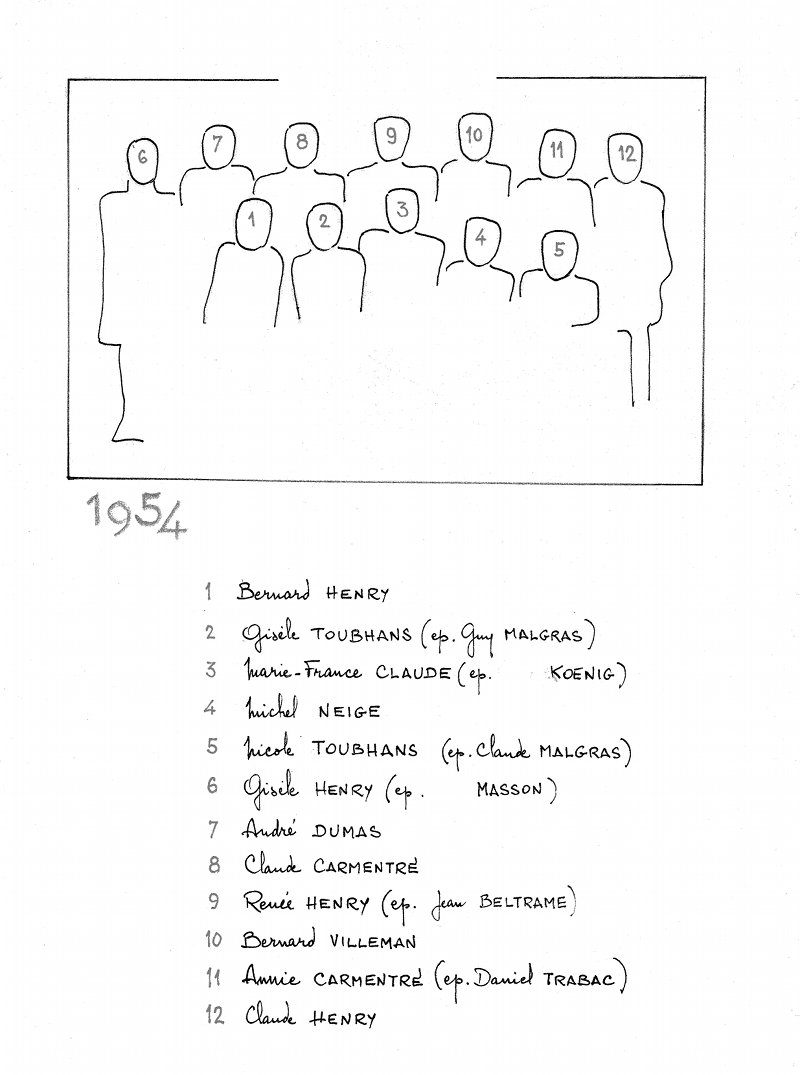 6 7 8 9 10 11 12
1 2 3 4 5
1954
1 Bernard HENRY
2 Gisèle TOUBHANS (ep. Guy MALGRAS)
3 Marie-France CLAUDE (ep. KOENIG)
4 Michel NEIGE
5 Nicole TOUBHANS (ep. Claude MALGRAS)
6 Gisèle HENRY (ep. MASSON)
7 André DUMAS
8 Claude CARMENTRÉ
9 Renée HENRY (ep. Jean BELTRAME)
10 Bernard VILLEMAN
11 Annie CARMENTRÉ (ep. Daniel TRABAC)
12 Claude HENRY